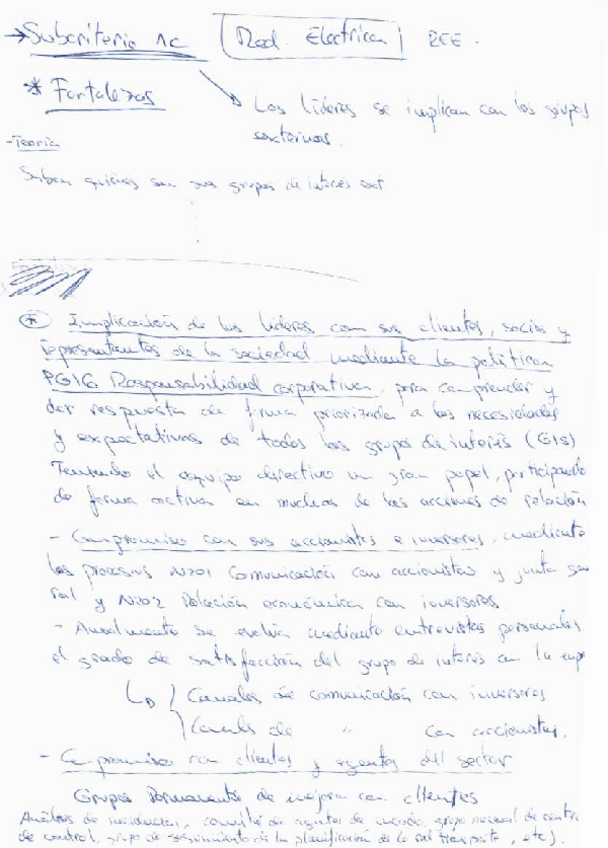 → Subcriterio 1c Red Electrica REE.
* Fortalezas
Los líderes se implican con los grupos
externos.
- Teoría
Saben quiénes son sus grupos de interés ext.
* Implicación de los líderes con sus clientes, socios y
representantes de la sociedad mediante la política
PG16 Responsabilidad corporativa, para comprender y
dar respuesta de forma priorizada a las necesidades
y expectativas de todos los grupos de interés (GIS)
Teniendo el equipo directivo un gran papel, participando
de forma activa en muchas de las acciones de relación
- Compromiso con sus accionistas e inversores, mediante
los procesos N201 Comunicación con accionistas y junta gene
ral y N202 Relación económica con inversores.
- Anualmente se evalúa mediante entrevistas personales
el grado de satisfacción del grupo de interés en la empr
Canales de comunicación con inversores
Canales de " con accionistas.
- Compromiso con clientes y agentes del sector
Grupos Permanentes de mejora con clientes
Análisis de incidencias, comité de agentes de mercado, grupo nacional de centros
de control, grupo de seguimiento de la planificación de la red transporte, etc).